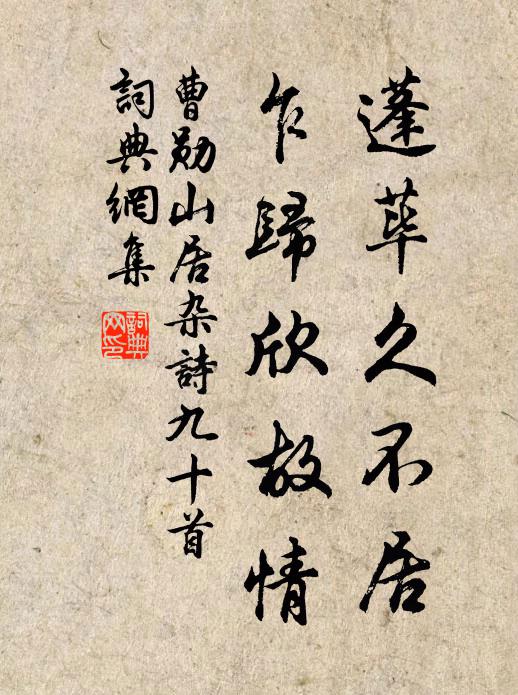 蓬荜久不居
乍歸欣故情
曹勛山居杂詩九十首
詞典網集
詞典
网印